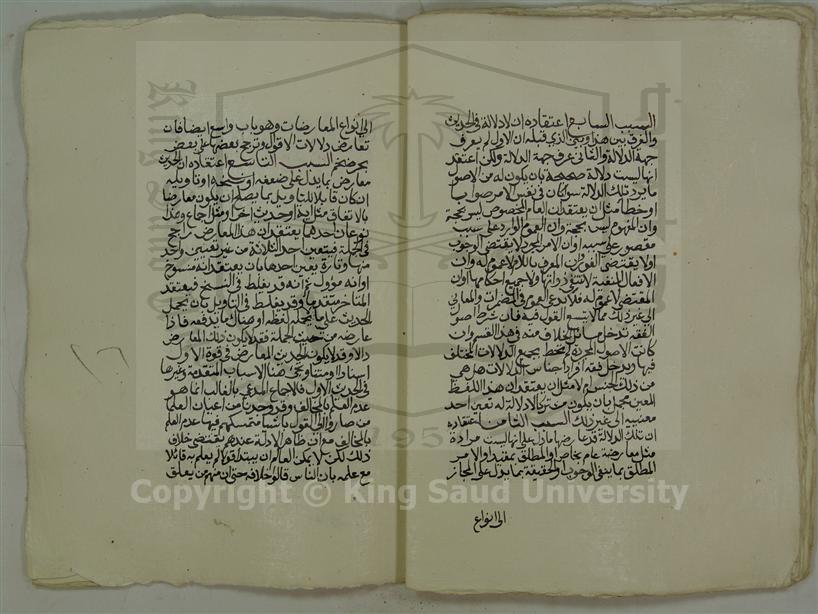 السبب السابع اعتقاده ان لا دلالة في الحديث
والفرق بين هذا وبين الذي قبله ان الاول لم يعرف
جهة الدلالة والثاني عرف جهة الدلالة ولكن اعتقد
انها ليست دلالة صحيحة بان يكون له من الاصول
ما يرد تلك الدلالة سوا كان في نفس الامر صوابا
او خطا مثل ان يعتقد ان العام المخصوص ليس بحجة
وان المفهوم ليس بحجة وان العموم الوارد على سبب
مقصور على سببه او ان الامر المجرد لا يقتضي الوجوب
او لا يقتضي الفور او ان المعرف باللام لا عموم له وان
الافعال المنفية لا تنفي ذواتها ولا جميع احكامها او ان
المقتضي لا عموم له فلا يدعي العموم في المضمرات والمعاني
الى غير ذلك مما لا يتسع القول فيه فان شطر اصول
الفقه تدخل مسائل الخلاف منه في هذا القسم وان
كانت الاصول المجردة لم تحط بجميع الدلالات المختلف
فيها ويدخل فيه افراد اجناس الدلالات هل هي
من ذلك الجنس ام لا مثل ان يعتقد ان هذا اللفظ
المعين مجمل بان يكون مشتركا لا دلالة له تعين احد
معنييه الى غير ذلك السبب الثامن اعتقاده
ان تلك الدلالة قد عارضها ما دل على انها ليست مرادة
مثل معارضة عام بخاص او المطلق بمقيد او الامر
المطلق بما ينفي الوجوب او الحقيقة بما يدل على المجاز
الى انواع
الى انواع المعارضات وهو باب واسع ايضا فان
تعارض دلالات الاقوال وترجيح بعضها على بعض
بحر خضم السبب التاسع اعتقاده ان الحديث
معارض بما يدل على ضعفه او نسخه او تاويله
ان كان قابلا للتاويل بما يصلح ان يكون معارضا
بالاتفاق مثل اية او حديث اخر او مثل اجماع وهذا
نوعان احدهما يعتقد ان هذا المعارض راجح
في الجملة فيتعين احد الثلاثة من غير تعيين واحد
منها وتارة يعين احدها بان يعتقد انه منسوخ
او انه مؤول ثم انه قد يغلط في النسخ فيعتقد
المتاخر متقدما وقد يغلط في التاويل بان يحمل
الحديث على ما لا يحتمله لفظه او هناك ما يدفعه فاذا
عارضه من حيث الجملة فقد لا يكون ذلك المعارض
دالا وقد لا يكون الحديث المعارض في قوة الاول
اسنادا او متنا وتجي هنا الاسباب المتقدمة وغيرها
في الحديث الاول فالاجماع المدعى بالغالب انما هو
عدم العلم بالمخالف وقد وجدنا من اعيان العلما
من صاروا الى القول باشيا متمسكهم فيها عدم العلم
بالمخالف مع ان ظاهر الادلة عندهم يقتضي خلاف
ذلك لكن لا يمكن العالم ان يبتدا قولا لم يعلم به قائلا
مع علمه بان الناس قالوا خلافه حتى ان منهم من يعلق